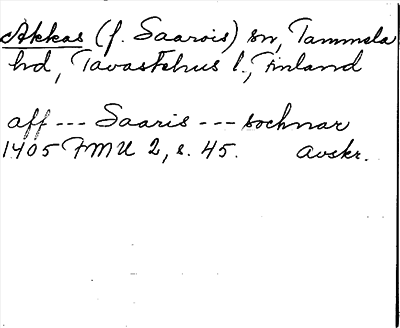 Akkas (f. Saarois) sn, Tammela
hd, Tavastehus l., Finland
aff --- Saaris --- sochnar
1405 FMU 2, s. 45. Avskr.